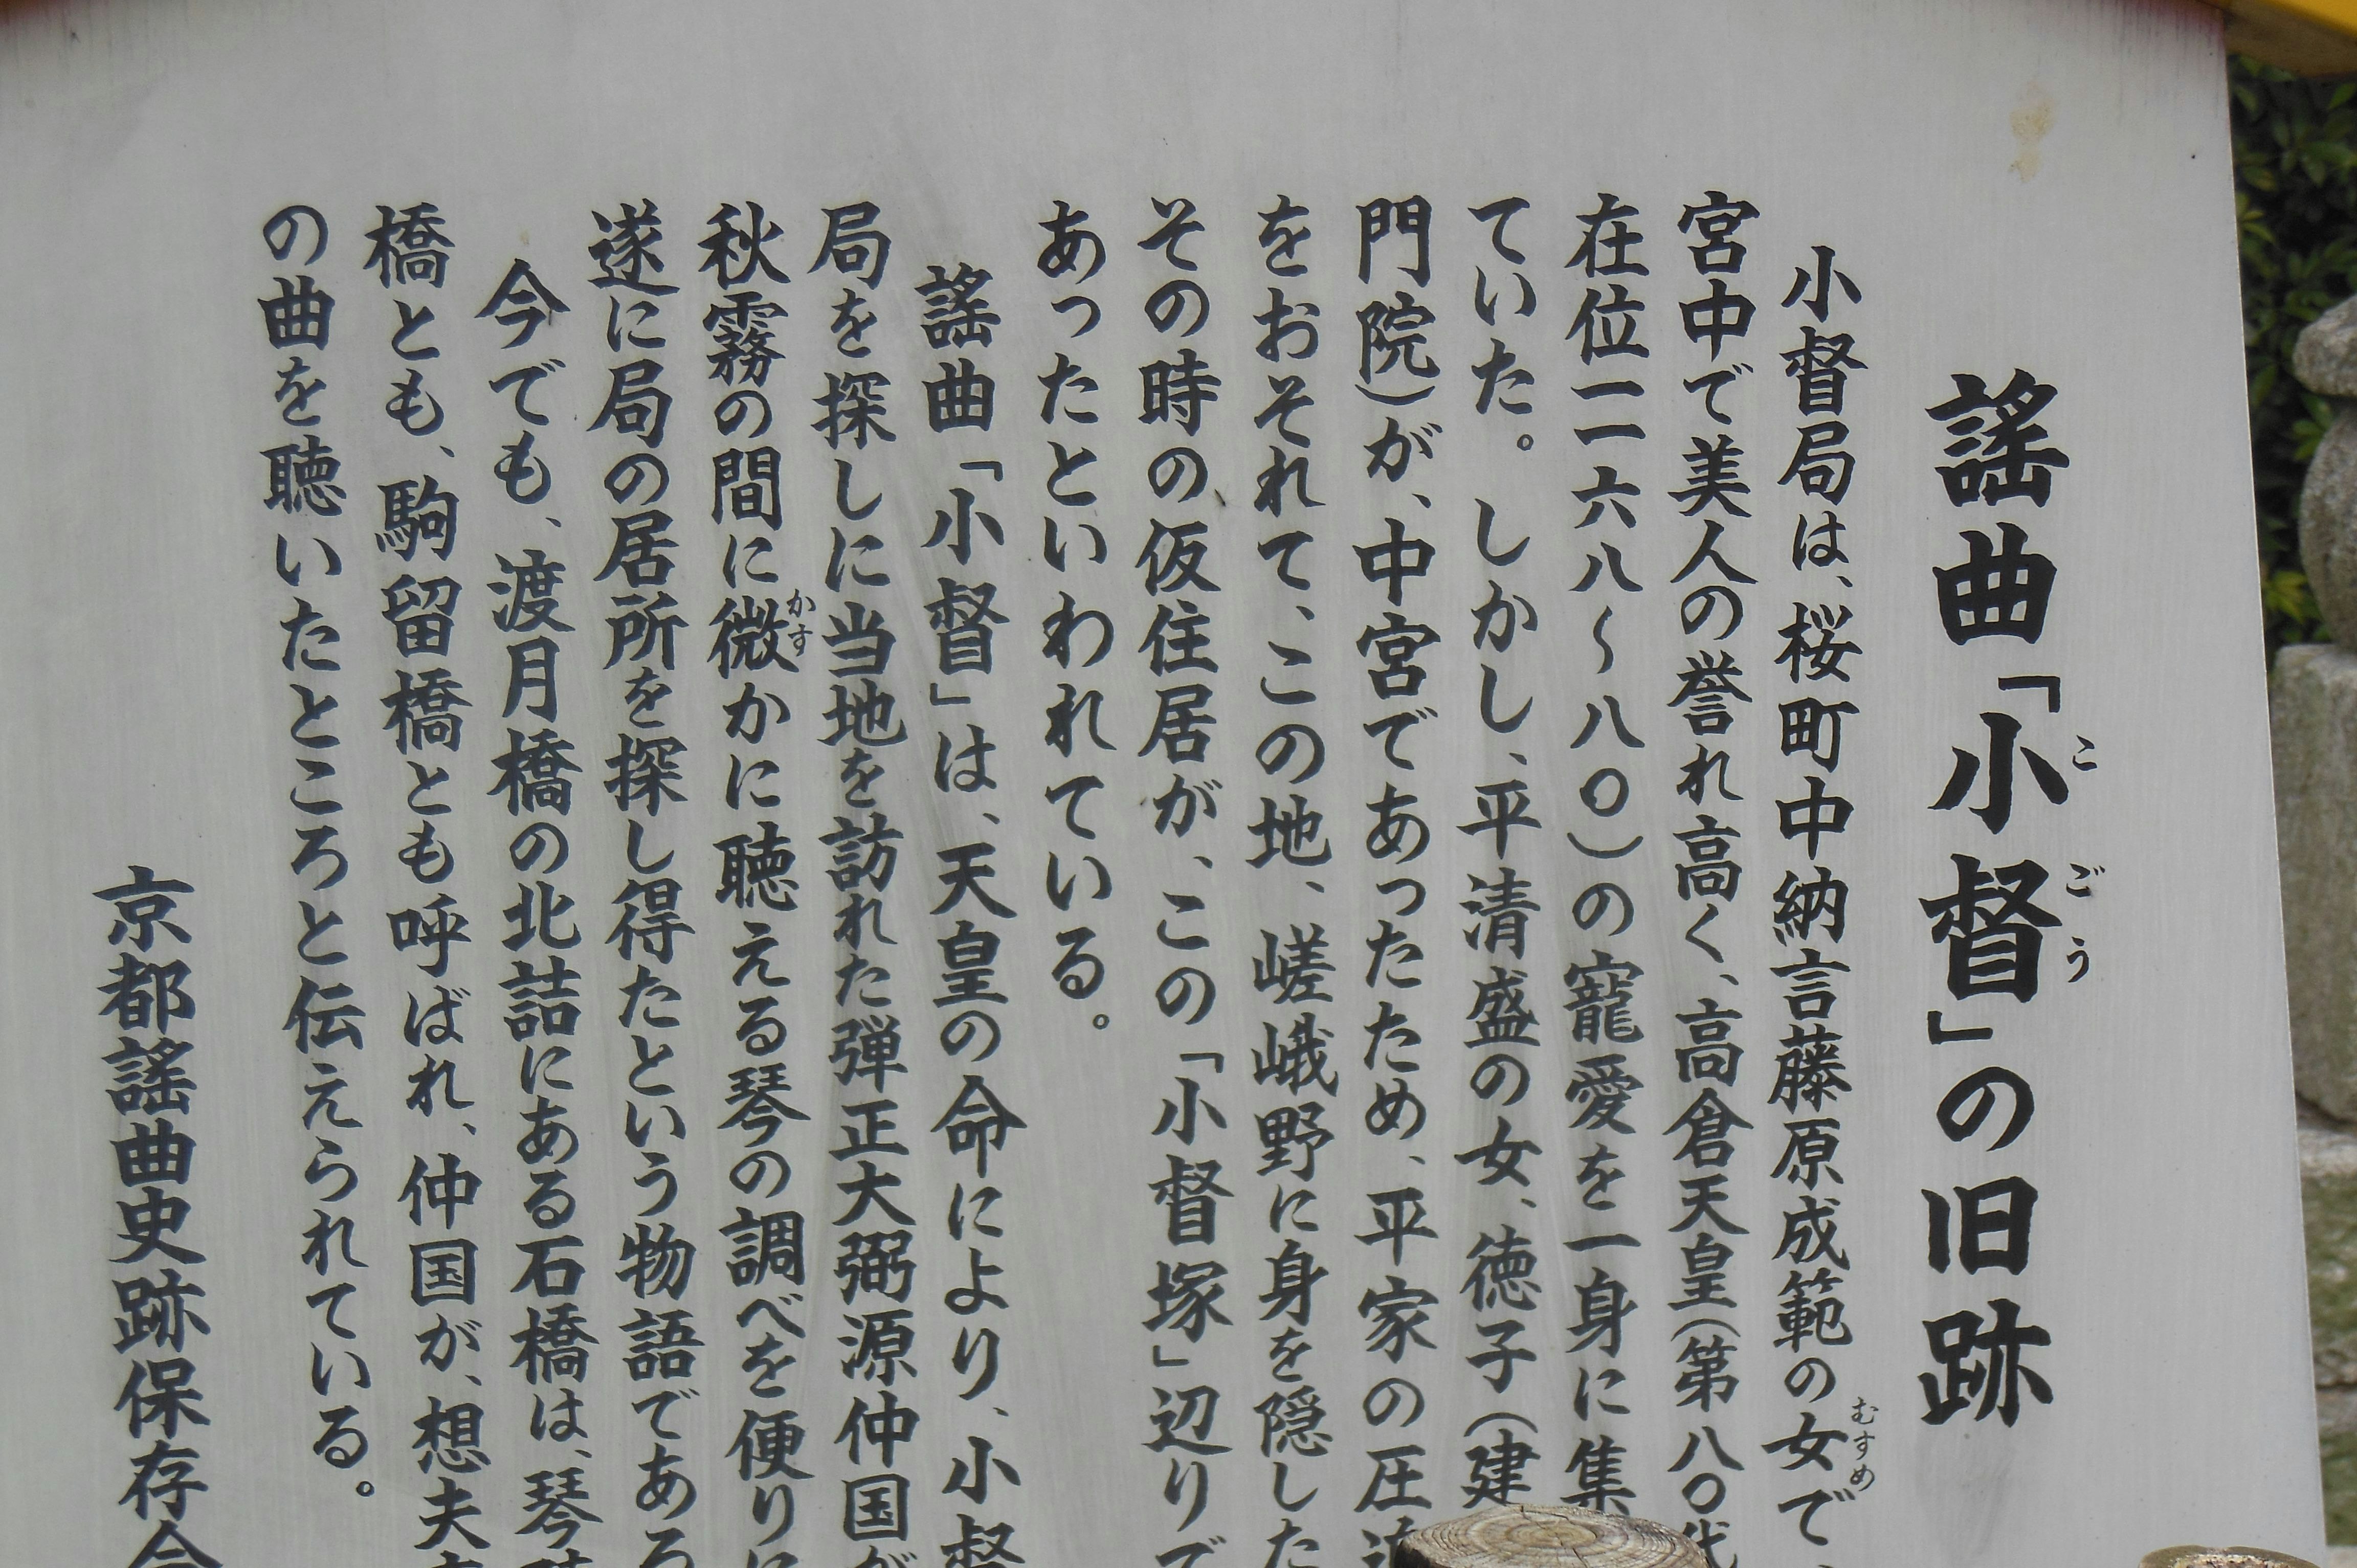 謡曲「小督」の旧跡
こごう
小督局は、桜町中納言藤原成範の女で、
むすめ
宮中で美人の誉れ高く、高倉天皇(第八〇代
在位一一六八〜八〇)の寵愛を一身に集
ていた。しかし、平清盛の女、徳子(建
門院)が、中宮であったため、平家の圧迫
をおそれて、この地、嵯峨野に身を隠した
その時の仮住居が、この「小督塚」辺りで
あったといわれている。
謡曲「小督」は、天皇の命により、小督
局を探しに当地を訪れた弾正大弼源仲国が
秋霧の間に微かに聴える琴の調べを便りに
かす
遂に局の居所を探し得たという物語である
今でも、渡月橋の北詰にある石橋は、琴聴
橋とも、駒留橋とも呼ばれ、仲国が、想夫
の曲を聴いたところと伝えられている。
京都謡曲史跡保存会